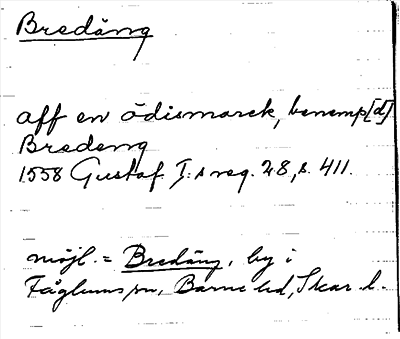 Bredäng
aff en ödismarck, benemp[d]
Bredeng
1558 Gustaf I:s reg. 28, s. 411.
möjl. = Bredäng, by i
Fåglums sn, Barne hd, Skar. l.